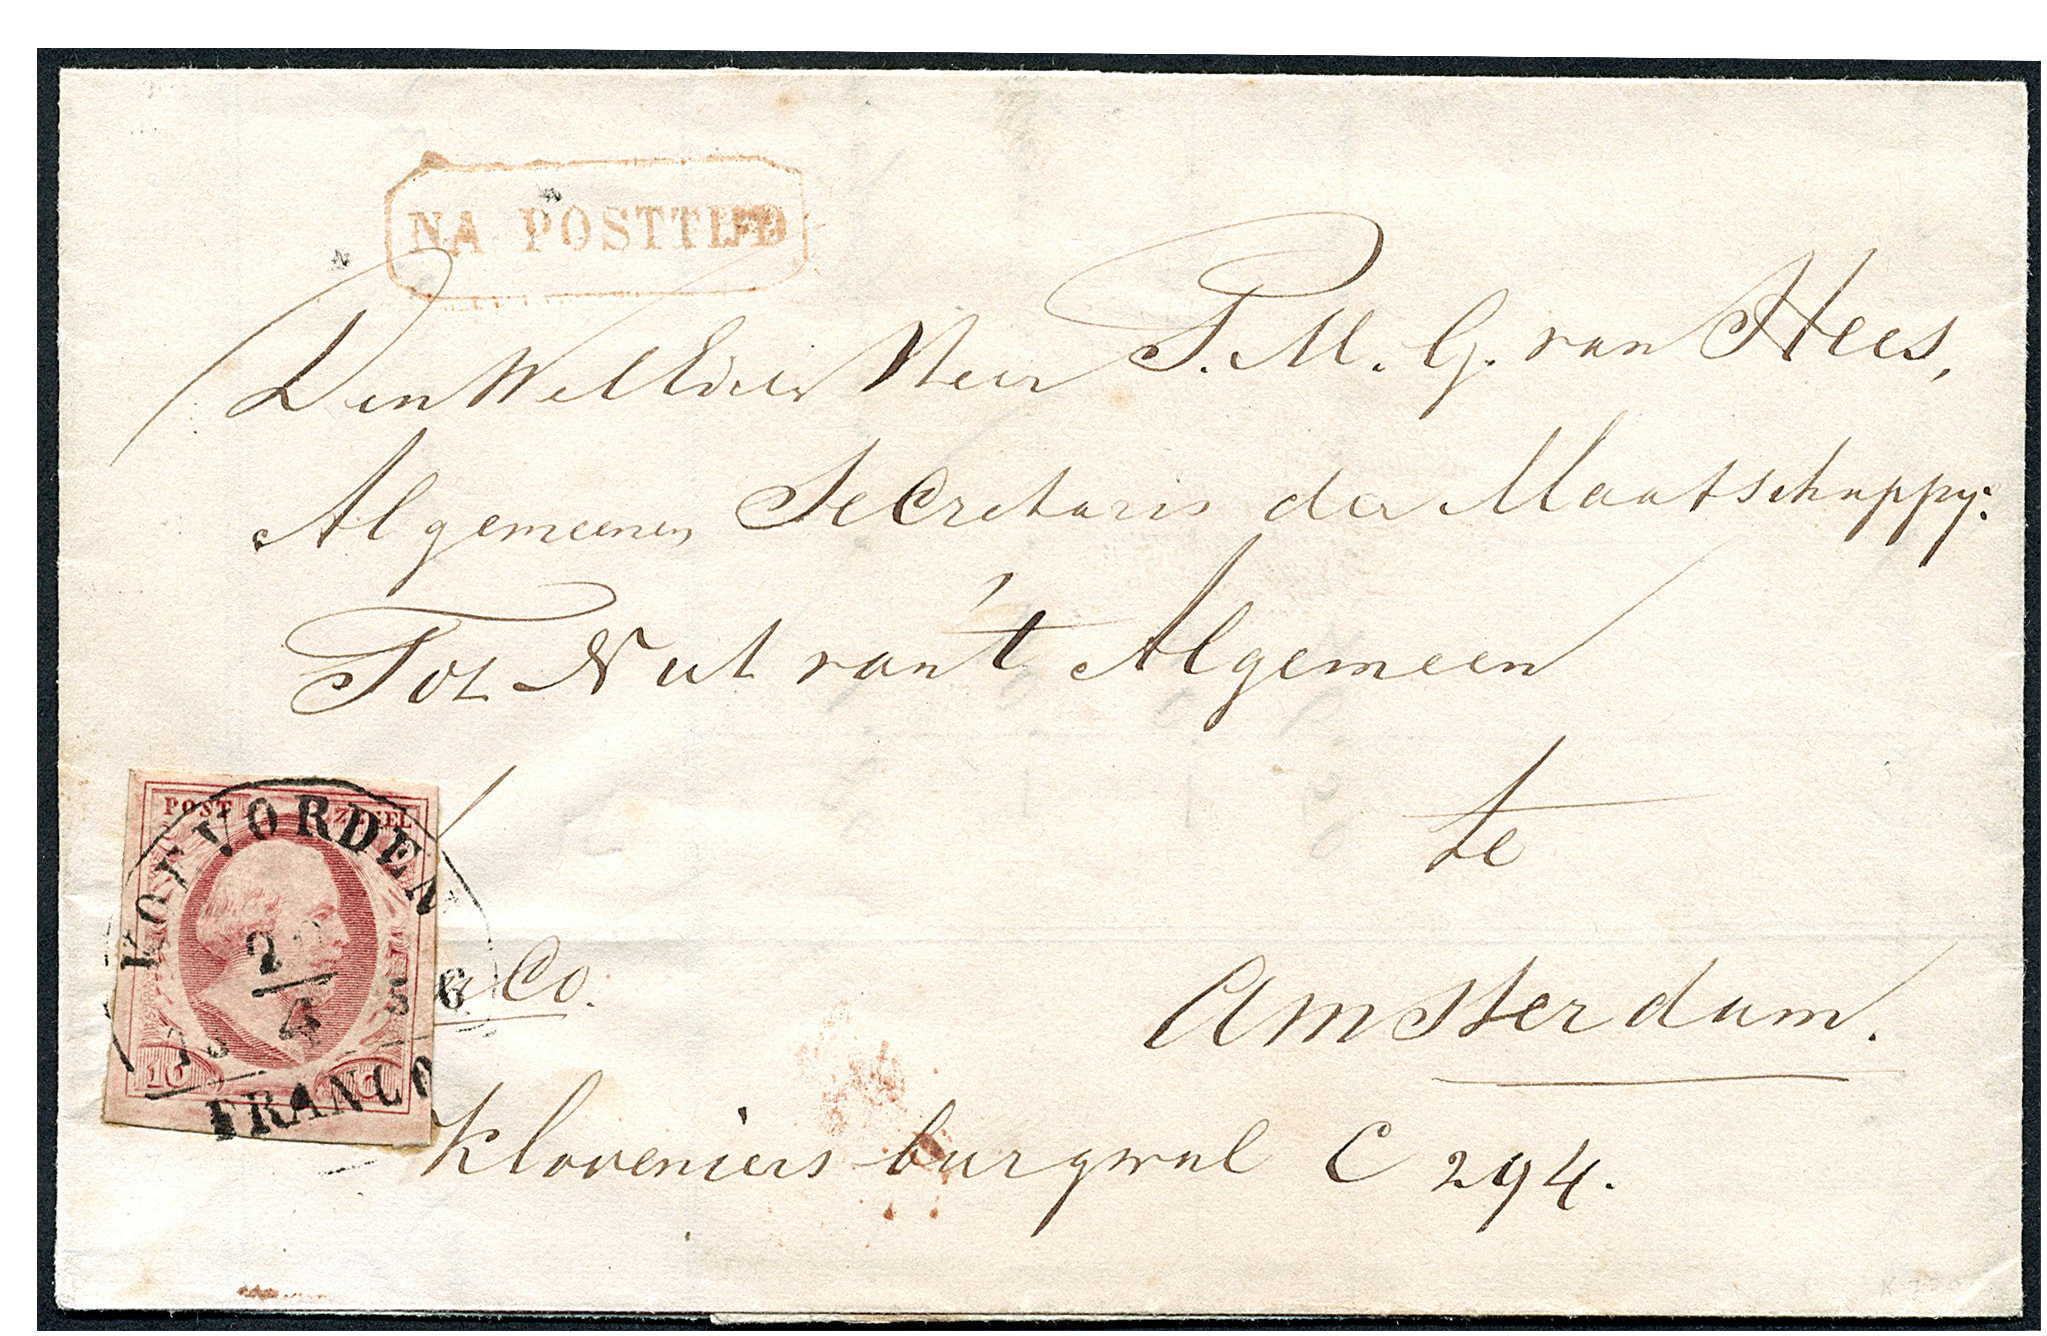 NA POSTTIJD
Den WelEdelen Heer P. M. G. van Hees,
Algemeenen Secretaris der Maatschappy:
Tot Nut van 't Algemeen
te
Amsterdam.
Co.
Kloveniers burgwal C 294.
POST ZEGEL
KOEVORDEN
2
4
56
10
FRANCO